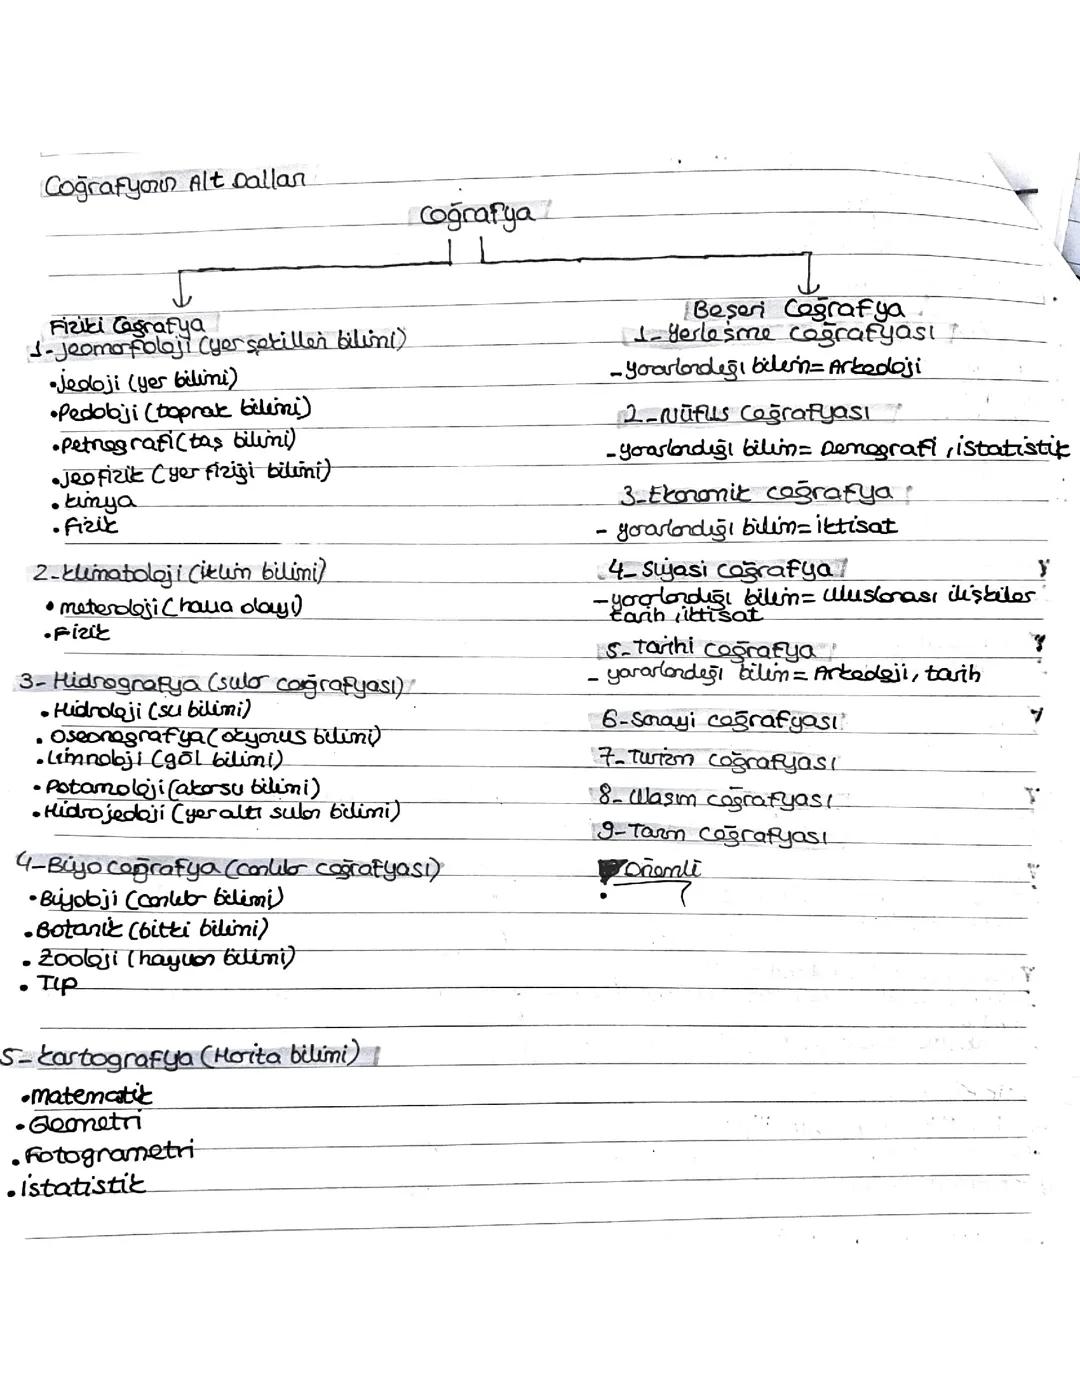 Coğrafyanın Alt Dalları
Coğrafya
Fiziki Coğrafya
1-Jeomorfoloji (yer şekilleri bilimi)
•Jeoloji (yer bilimi)
•Pedoloji (toprak bilimi)
•Petrografi (taş bilimi)
•Jeofizik (yer fiziği bilimi)
•kimya
•Fizik
2-klimatoloji (iklim bilimi)
•meteroloji (hava olayı)
•Fizik
3-Hidrografya (sular coğrafyası)
•Hidroloji (su bilimi)
•Oseonografya (okyonus bilimi)
•Limnoloji (göl bilimi)
•Potamoloji (akarsu bilimi)
•Hidrojeoloji (yeraltı suları bilimi)
4-Biyocoğrafya (canlılar coğrafyası)
•Biyoloji (canlılar bilimi)
•Botanik (bitki bilimi)
•Zooloji (hayvan bilimi)
•Tıp
5-kartografya (Harita bilimi)
•matematik
•Geometri
•Fotogrametri
•istatistik
Beşeri Coğrafya
1-Yerleşme coğrafyası
-yararlandığı bilim= Arkeoloji
2-Nüfus Coğrafyası
-yararlandığı bilim= Demografi, istatistik
3-Ekonomik coğrafya
- yararlandığı bilim= iktisat
4-Siyasi coğrafya
-yararlandığı bilim= Uluslarası ilişkiler
tarih, iktisat
5-Tarihi coğrafya
- yararlandığı bilim= Arkeoloji, tarih
6-Sanayi coğrafyası
7-Turizm coğrafyası
8-Ulaşım coğrafyası
9-Tarım coğrafyası
Önemli